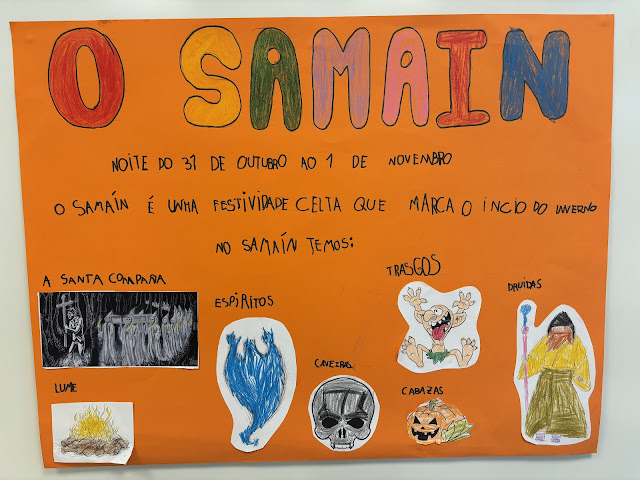 O SAMAIN
NOITE DO 31 DE OUTUBRO AO 1 DE NOVEMBRO
O SAMAÍN É UNHA FESTIVIDADE CELTA QUE MARCA O INCIO DO INVERNO
NO SAMAÍN TEMOS:
A SANTA COMPAÑA
ESPÍRITOS
TRASGOS
DRUIDAS
LUME
CAVEIRAS
CABAZAS